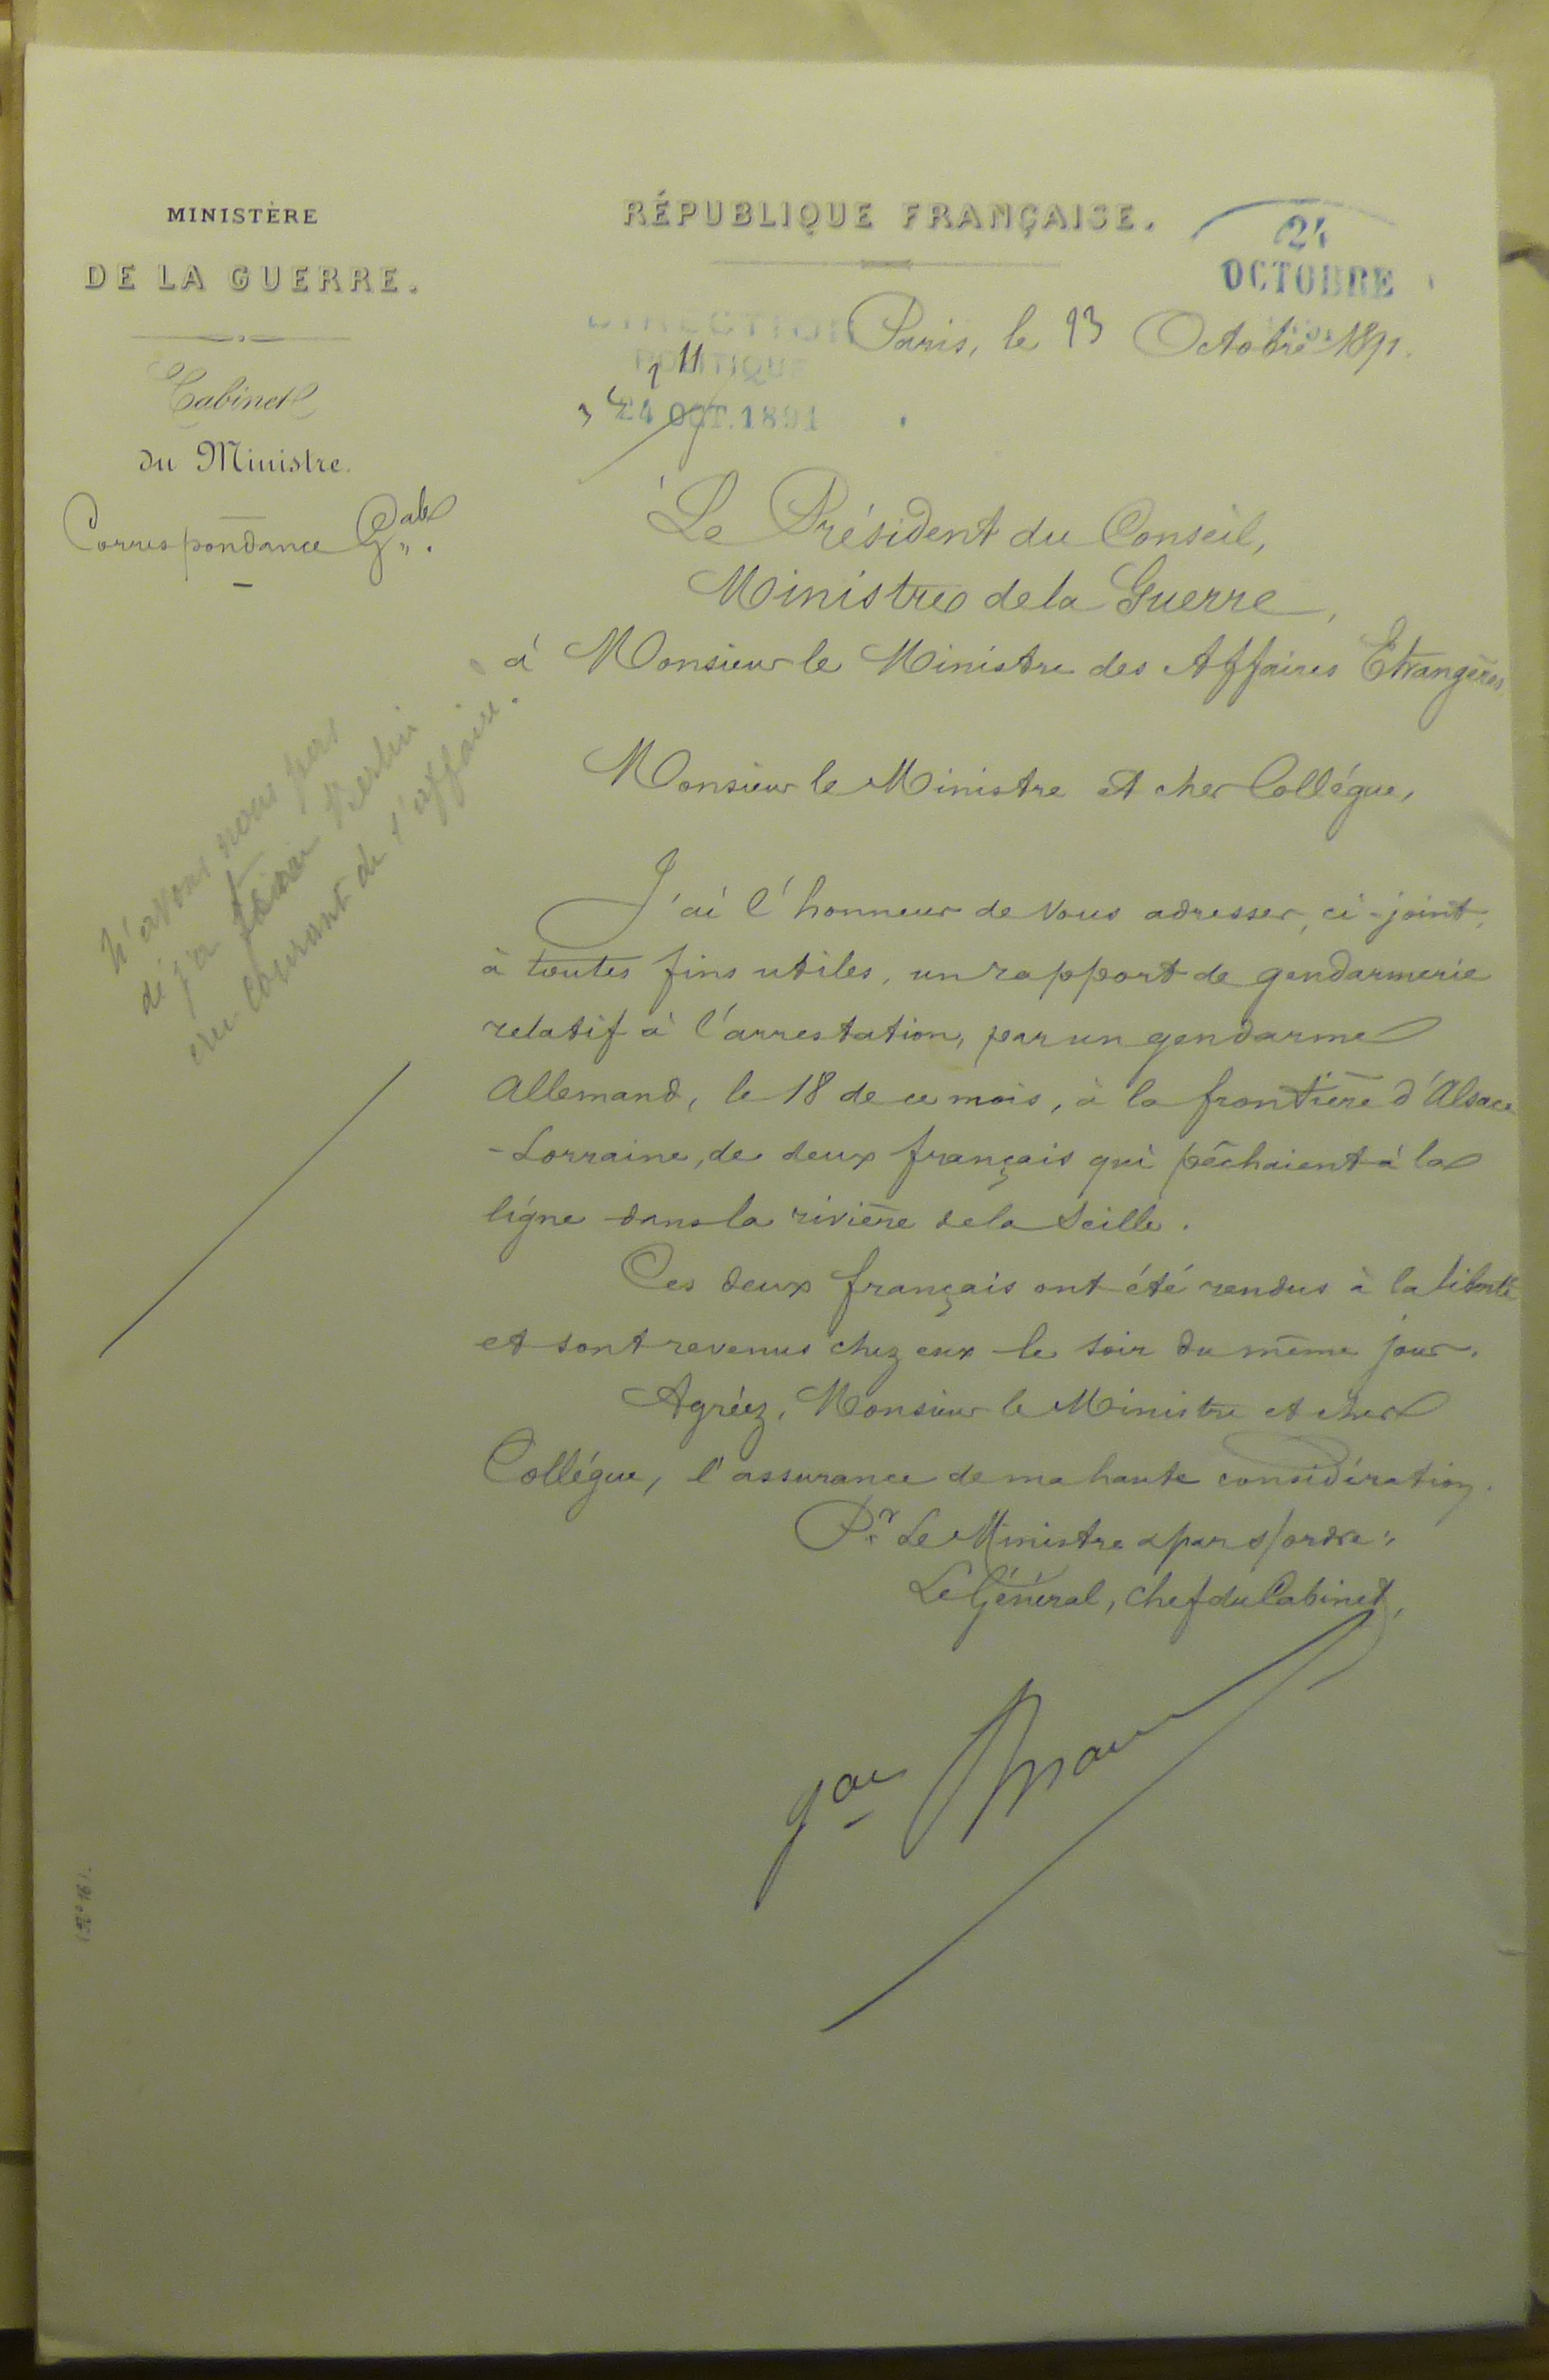 MINISTÈRE
DE LA GUERRE.
Cabinet
du Ministre.
Correspondance Gale
RÉPUBLIQUE FRANÇAISE.
24
OCTOBRE
Paris, le 23 Octobre 1891.
DIRECTION
POLITIQUE
24 OCT. 1891
Le Président du Conseil,
Ministre de la Guerre,
à Monsieur le Ministre des Affaires Etrangères
Monsieur le Ministre et cher Collégue,
n'avons nous pas
déjà Berlin
au courant de l'affaire.
J'ai l'honneur de vous adresser, ci-joint,
à toutes fins utiles, un rapport de gendarmerie
relatif à l'arrestation, par un gendarme
Allemand, le 18 de ce mois, à la frontière d'Alsace
-Lorraine, de deux français qui pêchaient à la
ligne dans la rivière de la Seille.
Ces deux français ont été rendus à la liberté
et sont revenus chez eux le soir du même jour.
Agréez, Monsieur le Ministre et cher
Collégue, l'assurance de ma haute considération.
Pr. Le Ministre & par s/ordre:
Le Général, chef du Cabinet,